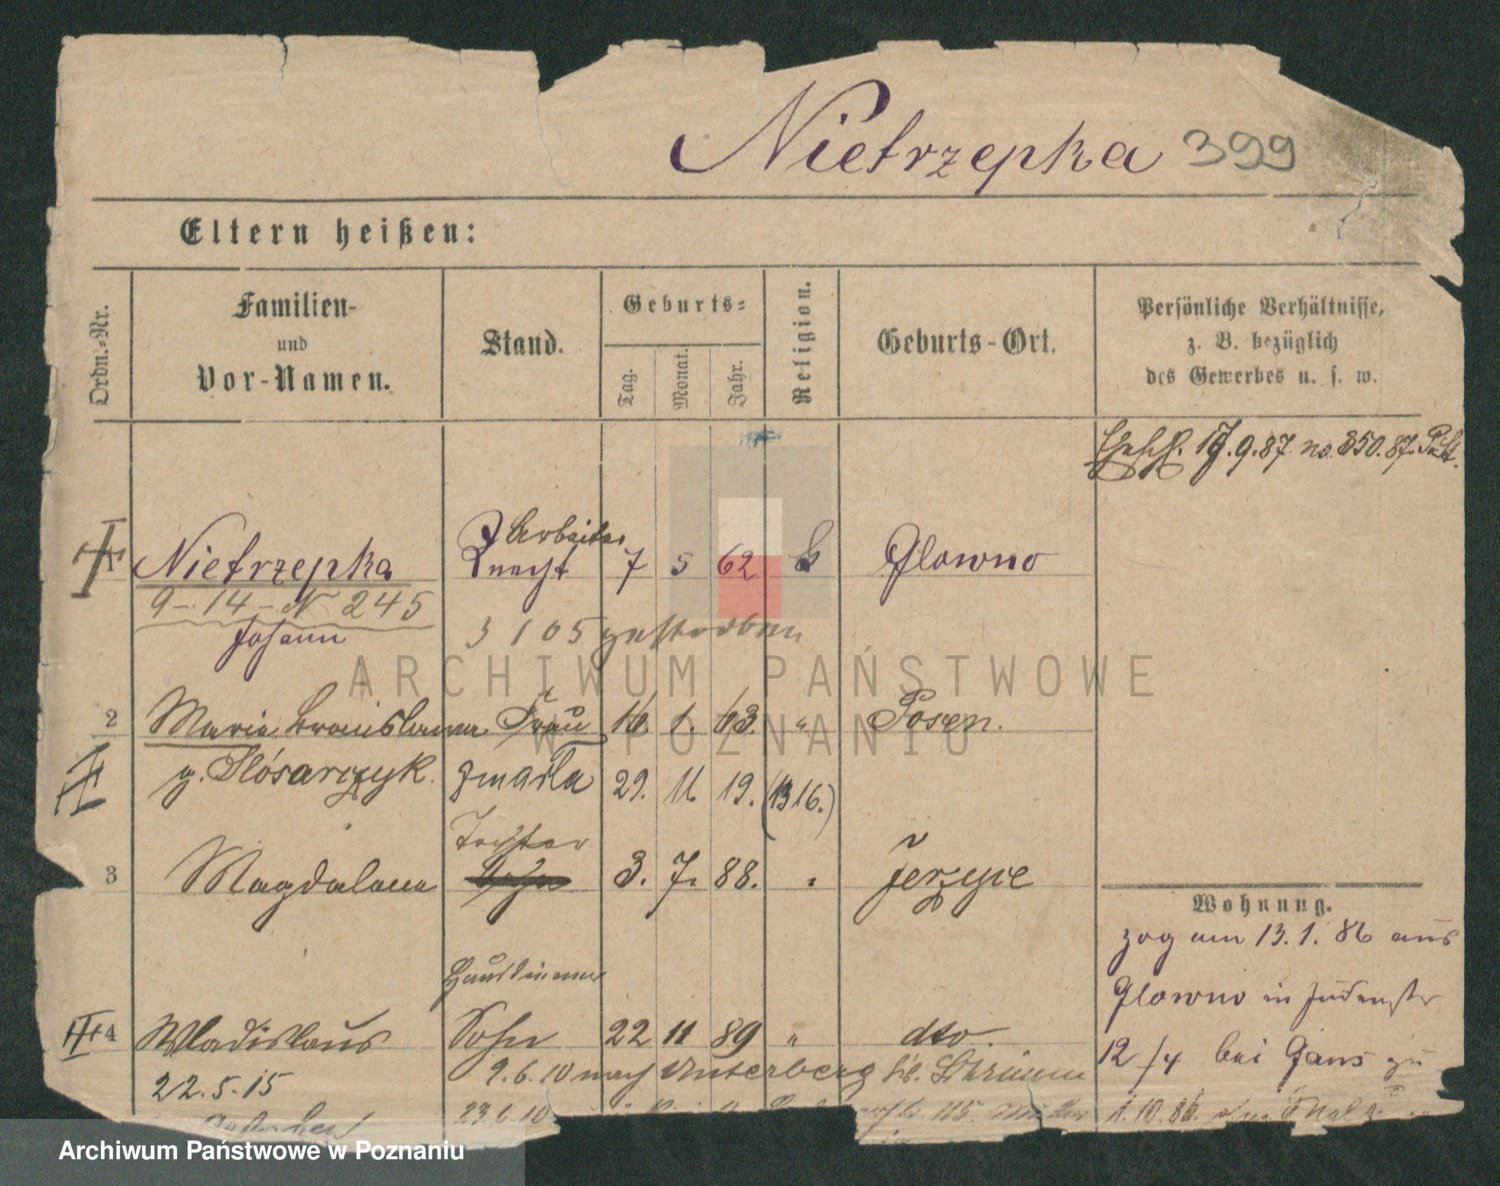 Nietrzepka 399
Eltern heißen:
Ordn.-Nr.
Familien-
und
Vor-Namen.
Stand.
Geburts-
Tag.
Monat.
Jahr.
Religion.
Geburts-Ort.
Persönliche Verhältnisse,
z. B. bezüglich
des Gewerbes u. s. w.
17.9.87. no. 350.87.
Arbeiter
Nietrzepka Knecht 7 5 62 k Glowno
9-14-N 245
Johann
3 1 05 gestorben
2 Maria Bronislawa Frau 16. 1. 63. " Posen.
g. Slósarczyk. zmarła 29. 11. 19. (1316.)
Tochter
3 Magdalena Sohn 3. 7. 88. " Jerzyce
Wohnung.
zog am 13.1.86 aus
Glowno in Judenstr
12/4 bei Gans zu
1.10.86.
Hausdiener
4 Wladislaus Sohn 22 11 89 " dto.
22.5.15 9.6.10 nach Unterberg b. Schrimm
23.6.10
ARCHIWUM PAŃSTWOWE
W POZNANIU
Archiwum Państwowe w Poznaniu